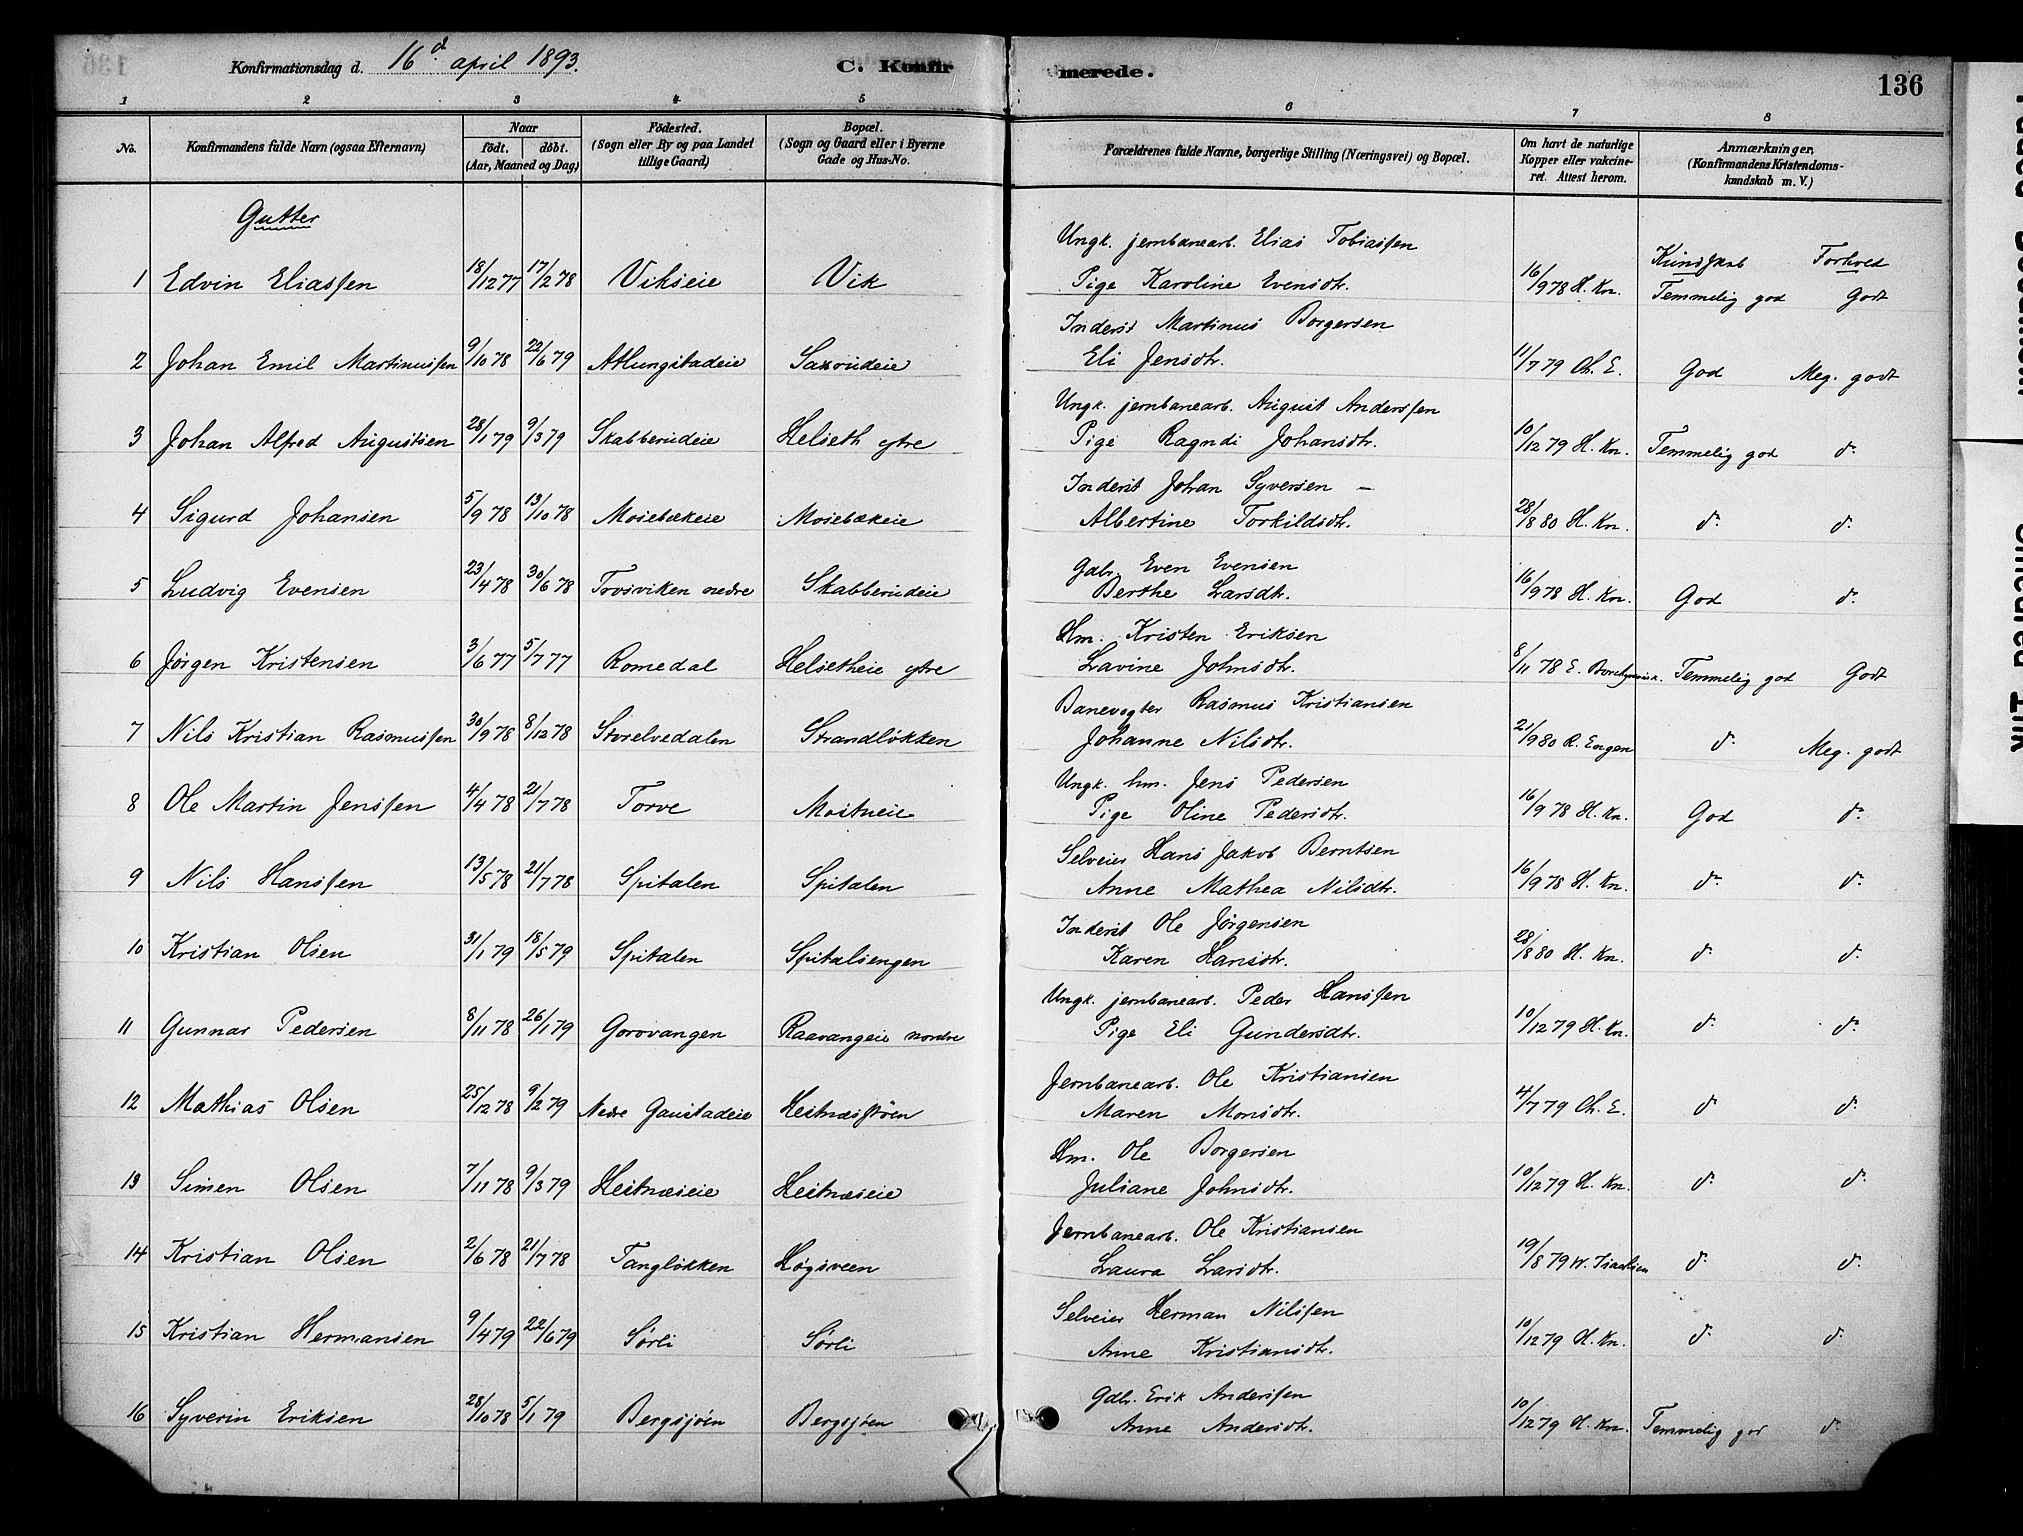 Konfirmationsdag d. 16d april 1893. C. Konfirmerede. 136
1 2 3 4 5 6 7 8
No. Konfirmandens fulde Navn (ogsaa Efternavn) Naar født. døbt. (Aar, Maaned og Dag) Fødested. (Sogn eller By og paa Landet tillige Gaard) Bopæl. (Sogn og Gaard eller i Byerne Gade og Hus-No. Forældrenes fulde Navne, borgerlige Stilling (Næringsvei) og Bopæl. Om havt de naturlige Kopper eller vakcineret. Attest herom. Anmærkninger, (Konfirmandens Kristendomskundskab m. V.)
Gutter
Ungk. jernbanearb. Elias Tobiassen Kundskab Forhold
1 Edvin Eliassen 18/12 77 17/2 78 Vikseie Vik Pige Karoline Evensdtr. 16/9 78 H. Kn. Temmelig god Godt
Inderst Martinus Borgersen
2 Johan Emil Martinussen 9/10 78 22/6 79 Atlungstadeie Saxrudeie Eli Jensdtr. 11/7 79 Ch. E. God Meg. godt
Ungk. jernbanearb. August Anderssen
3 Johan Alfred Augustsen 28/1 79 9/3 79 Skabberudeie Helseth ytre Pige Ragndi Johansdtr. 10/12 79 H. Kn. Temmelig god do
Inderst Johan Syversen –
4 Sigurd Johansen 5/9 78 13/10 78 Mosebækeie Mosebækeie Albertine Torkildsdtr. 28/8 80 H. Kn. do do
Gdbr. Even Evensen
5 Ludvig Evensen 23/4 78 30/6 78 Torsviken nedre Skabberudeie Berthe Larsdtr. 16/9 78 H. Kn. God do
Hm. Kristen Eriksen
6 Jørgen Kristensen 3/6 77 5/7 77 Romedal Helsetheie ytre Lavine Johnsdtr. 8/11 78 E. Temmelig god Godt
Banevogter Rasmus Kristiansen
7 Nils Kristian Rasmussen 30/9 78 8/12 78 Storelvedalen Strandløkken Johanne Nilsdtr. 21/9 80 R. Engen do Meg. godt
Ungk. hm. Jens Pedersen
8 Ole Martin Jenssen 4/4 78 21/7 78 Torve Mostueie Pige Oline Pedersdtr. 16/9 78 H. Kn. God do
Selveier Hans Jakob Berntsen
9 Nils Hanssen 13/5 78 21/7 78 Spitalen Spitalen Anne Mathea Nilsdtr. 16/9 78 H. Kn. do do
Inderst Ole Jørgensen
10 Kristian Olsen 31/1 79 18/5 79 Spitalen Spitalsengen Karen Hansdtr. 28/8 80 H. Kn. do do
Ungk. jernbanearb. Peder Hanssen
11 Gunnar Pedersen 8/11 78 26/1 79 Gorovangen Raavangeie nordre Pige Eli Gundersdtr. 10/12 79 H. Kn. do do
Jernbanearb. Ole Kristiansen
12 Mathias Olsen 25/12 78 9/2 79 Nedre Gaustadeie Hestnæsstøen Maren Monsdtr. 4/7 79 Ch. E. do do
Hm. Ole Borgersen
13 Simen Olsen 7/11 78 9/3 79 Hestnæseie Hestnæseie Juliane Johnsdtr. 10/12 79 H. Kn. do do
Jernbanearb. Ole Kristiansen
14 Kristian Olsen 2/6 78 21/7 78 Tangløkken Høgsveen Laura Larsdtr. 19/8 79 W. Isaachsen do do
Selveier Herman Nilssen
15 Kristian Hermansen 9/4 79 22/6 79 Sørli Sørli Anne Kristiansdtr. 10/12 79 H. Kn. do do
Gdbr. Erik Anderssen
16 Syverin Eriksen 28/10 78 5/1 79 Bergsjøen Anne Andersdtr. 10/12 79 H. Kn. Temmelig god do